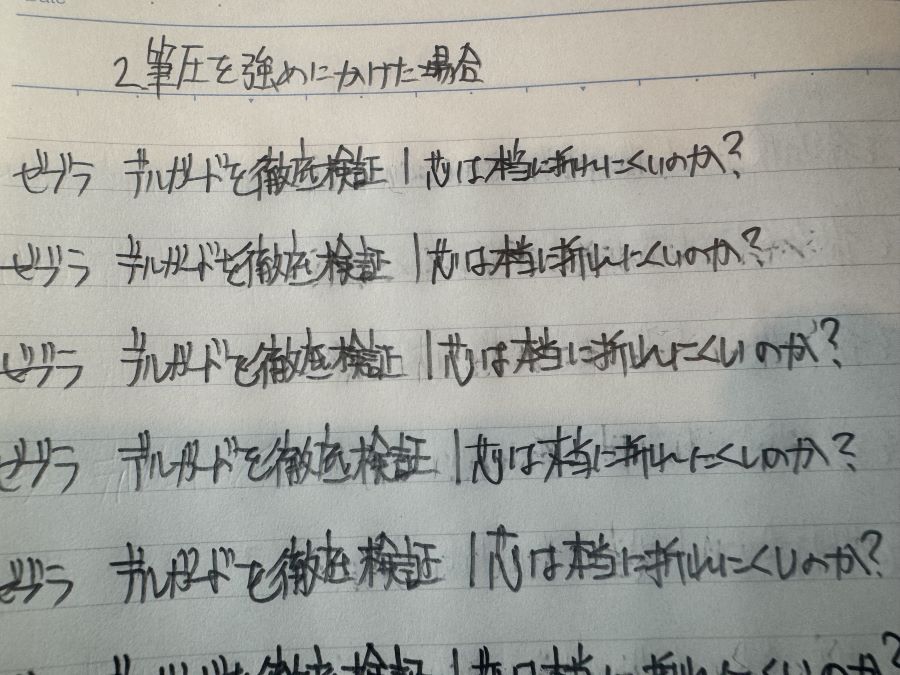 Date
2 筆圧を強めにかけた場合
ゼブラ デルガードを徹底検証 | 芯は本当に折れにくいのか?
ゼブラ デルガードを徹底検証 | 芯は本当に折れにくいのか?
ゼブラ デルガードを徹底検証 | 芯は本当に折れにくいのか?
ゼブラ デルガードを徹底検証 | 芯は本当に折れにくいのか?
ゼブラ デルガードを徹底検証 | 芯は本当に折れにくいのか?
デルガードを徹底検証 | 芯は本当に折れにくいのか?